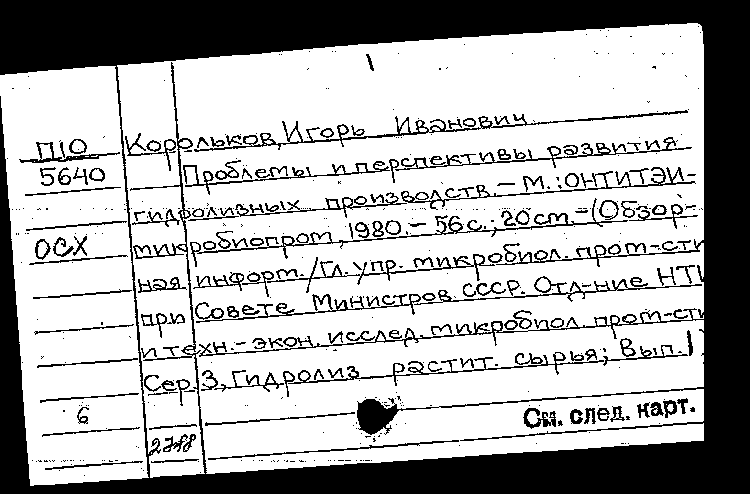 П10 Корольков, Игорь Иванович
5640 Проблемы и перспективы развития
гидролизных производств.- М.: ОНТИТЭИ-
ОСХ микробиопром, 1980.- 56с.; 20см.-(Обзор-
ная информ./Гл. упр. микробиол. пром-сти
при Совете Министров СССР. Отд-ние НТИ
и техн.-экон. исслед. микробиол. пром-сти
Сер. 3, Гидролиз растит. сырья; Вып. 1)
6
См. след. карт.
2748